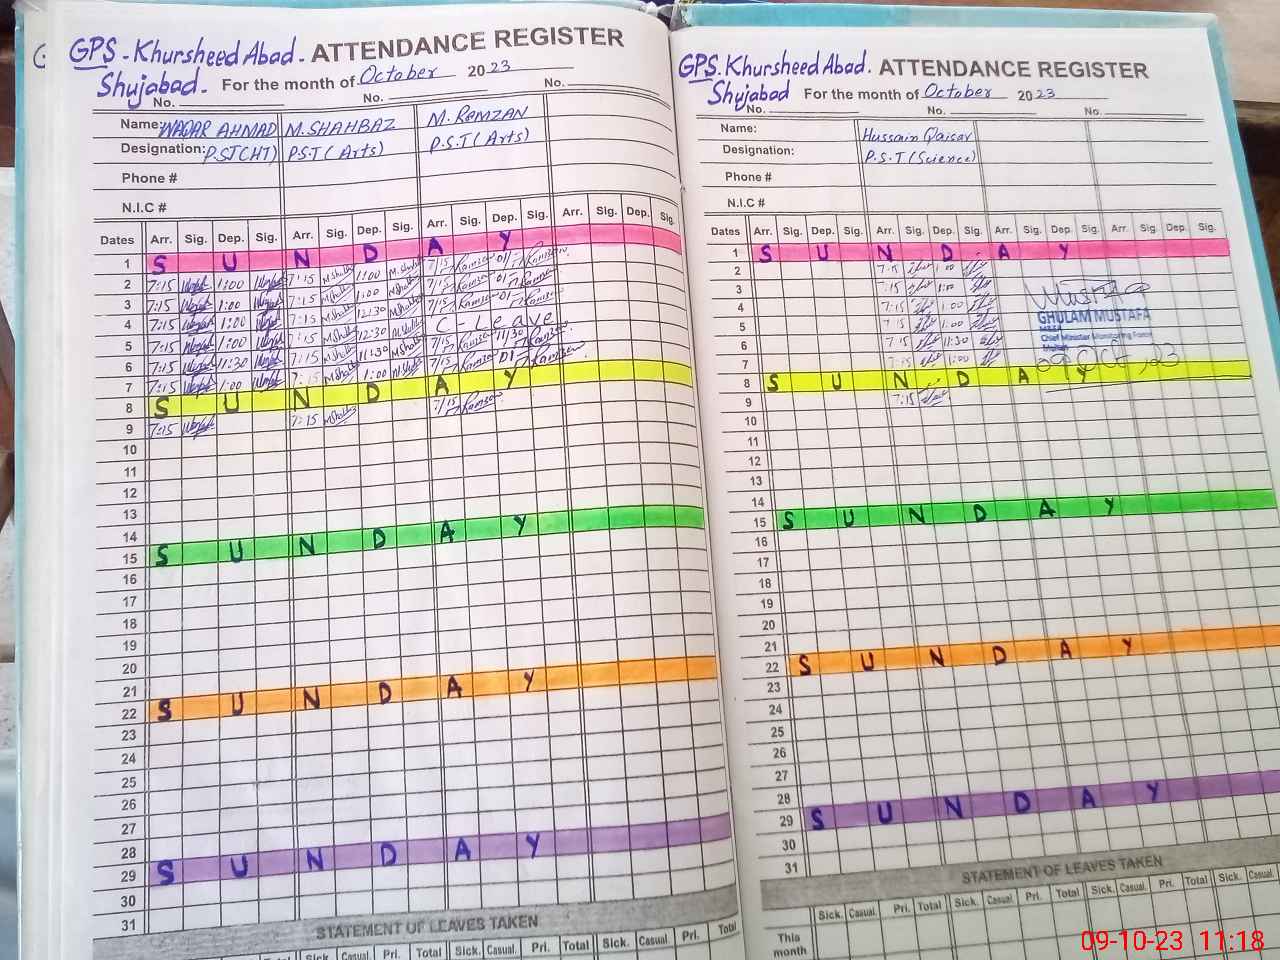 GPS - Khursheed Abad. ATTENDANCE REGISTER
Shujabad. For the month of October 2023
No. No. No.
Name: WAQAR AHMAD M.SHAHBAZ M. RAMZAN
Designation: P.ST(HT) P.S.T (Arts) P.S.T (Arts)
Phone #
N.I.C #
Dates Arr. Sig. Dep. Sig. Arr. Sig. Dep. Sig. Arr. Sig. Dep. Sig. Arr. Sig. Dep. Sig.
1 S U N D A Y
2 7:15 1:00 7:15 1:00 7/15
3 7:15 1:00 7:15 1:00 7/15
4 7:15 1:00 7:15 12:30 7/15
5 7:15 1:00 7:15 12:30 C - Leave
6 7:15 11:30 7:15 11:30 7/15 11/30
7 7:15 1:00 7:15 1:00 7/15
8 S U N D A Y
9 7:15 7:15 7/15
10
11
12
13
14
15 S U N D A Y
16
17
18
19
20
21
22 S U N D A Y
23
24
25
26
27
28
29 S U N D A Y
30
31
STATEMENT OF LEAVES TAKEN
Sick. Casual. Pri. Total Sick. Casual. Pri. Total
GPS. Khursheed Abad. ATTENDANCE REGISTER
Shujabad For the month of October 2023
No. No. No.
Name: Hussain Qaisar
Designation: P.S.T (Science)
Phone #
N.I.C #
Dates Arr. Sig. Dep. Sig. Arr. Sig. Dep. Sig. Arr. Sig. Dep. Sig. Arr. Sig. Dep. Sig.
1 S U N D A Y
2 7:15 1:00
3 7:15 1:00
4 7:15 1:00
GHULAM MUSTAFA
5 7:15 1:00
Chief Minister Monitoring Force
6 7:15 11:30
Multan
7 7:15 1:00
09 OCT, 23
8 S U N D A Y
9 7:15
10
11
12
13
14
15 S U N D A Y
16
17
18
19
20
21
22 S U N D A Y
23
24
25
26
27
28
29 S U N D A Y
30
31
STATEMENT OF LEAVES TAKEN
Sick. Casual. Pri. Total Sick. Casual. Pri. Total Sick. Casual.
This
month
09-10-23 11:18